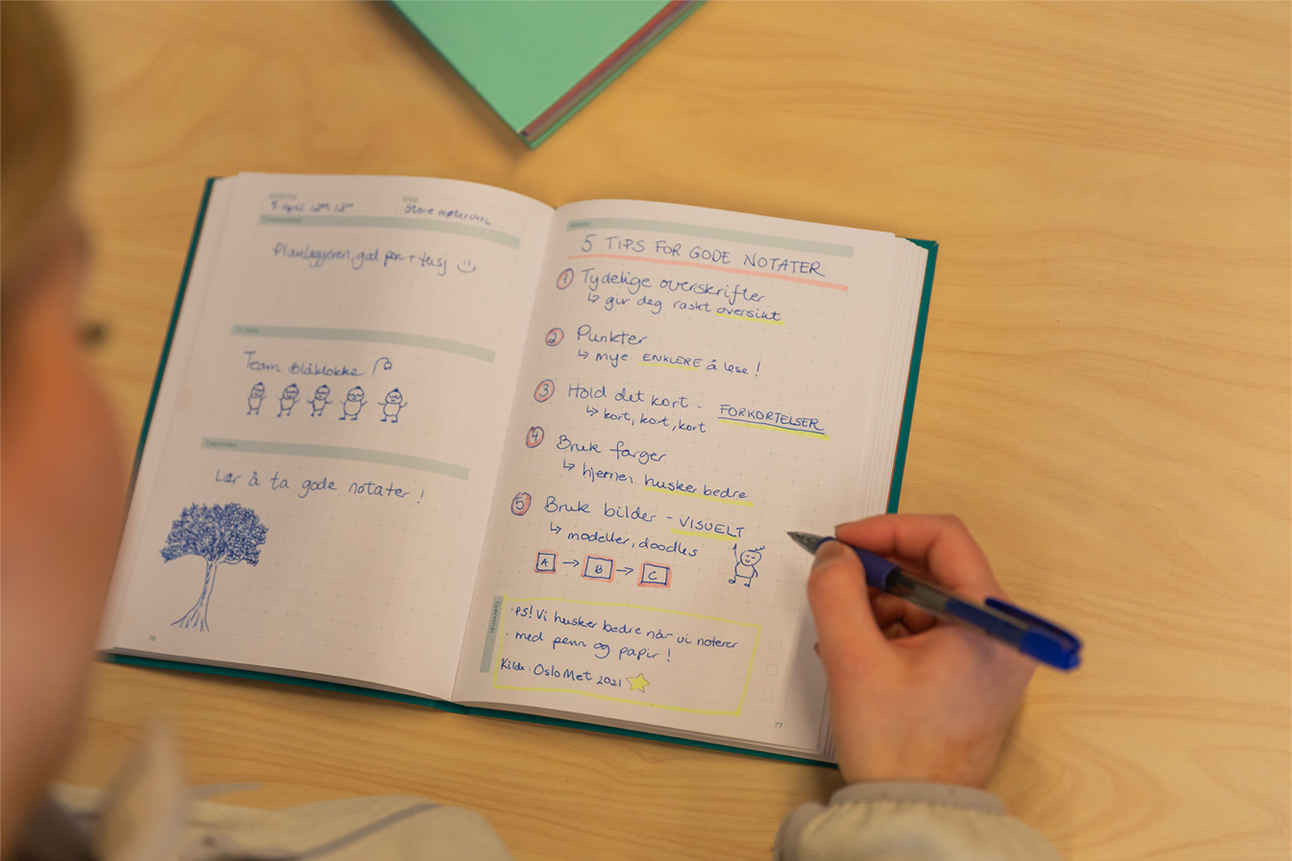 8. april
Store møterom
Planleggeren, god penn + tusj
Team Blåklokke
Lær å ta gode notater!
76
5 TIPS FOR GODE NOTATER
1 Tydelige overskrifter
↳ gir deg raskt oversikt
2 Punkter
↳ mye ENKLERE å lese!
3 Hold det kort - FORKORTELSER
↳ kort, kort, kort
4 Bruk farger
↳ hjernen husker bedre
5 Bruk bilder - VISUELT
↳ modeller, doodles
A → B → C
Gjøremål
· PS! Vi husker bedre når vi noterer
· med penn og papir!
Kilde: OsloMet 2021
77